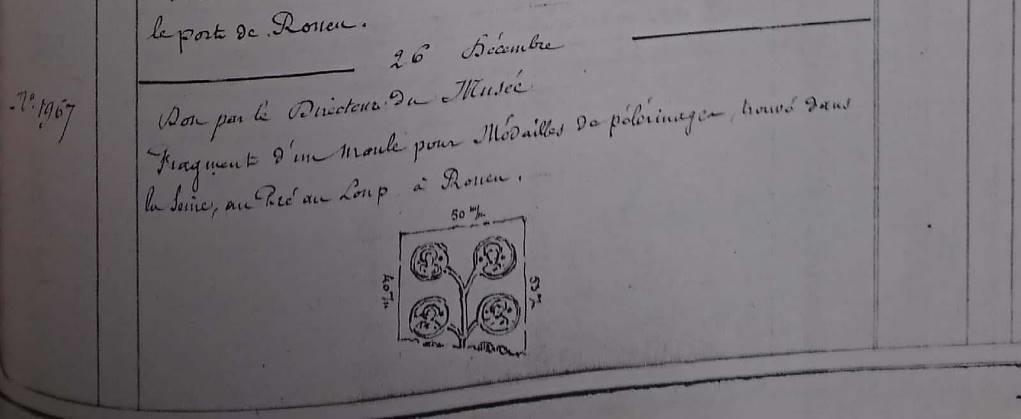 le port de Rouen.
26 Décembre
N° 1967
Don par le Directeur du Musée
Fragment d'un moule pour Médailles de pélérinages, trouvé dans
la Seine, au Pré au Loup à Rouen.
50 m/m
40 m/m
53 m/m